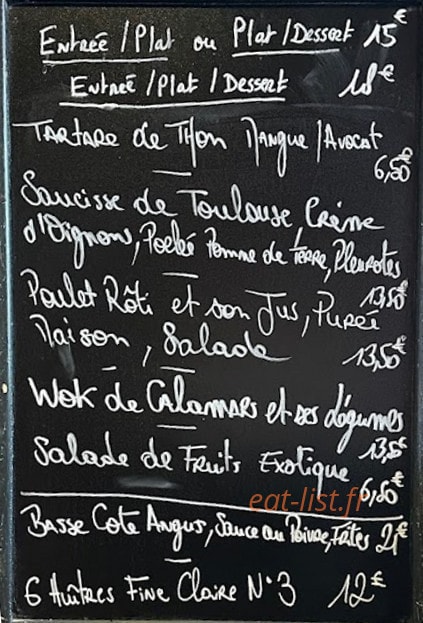 Entrée / Plat ou Plat / Dessert 15€
Entrée / Plat / Dessert 18€
Tartare de Thon Mangue / Avocat
6,50€
Saucisse de Toulouse, Crème
d'Oignons, Poelé Pomme de Terre, Pleurotes
13,50€
Poulet Rôti et son Jus, Purée
Maison, Salade
13,50€
Wok de Calamars et ses légumes
13,50€
Salade de Fruits Exotique
6,50€
eat-list.fr
Basse Cote Angus, Sauce au Poivre, Frites 21€
6 Huîtres Fine Claire N°3 12€